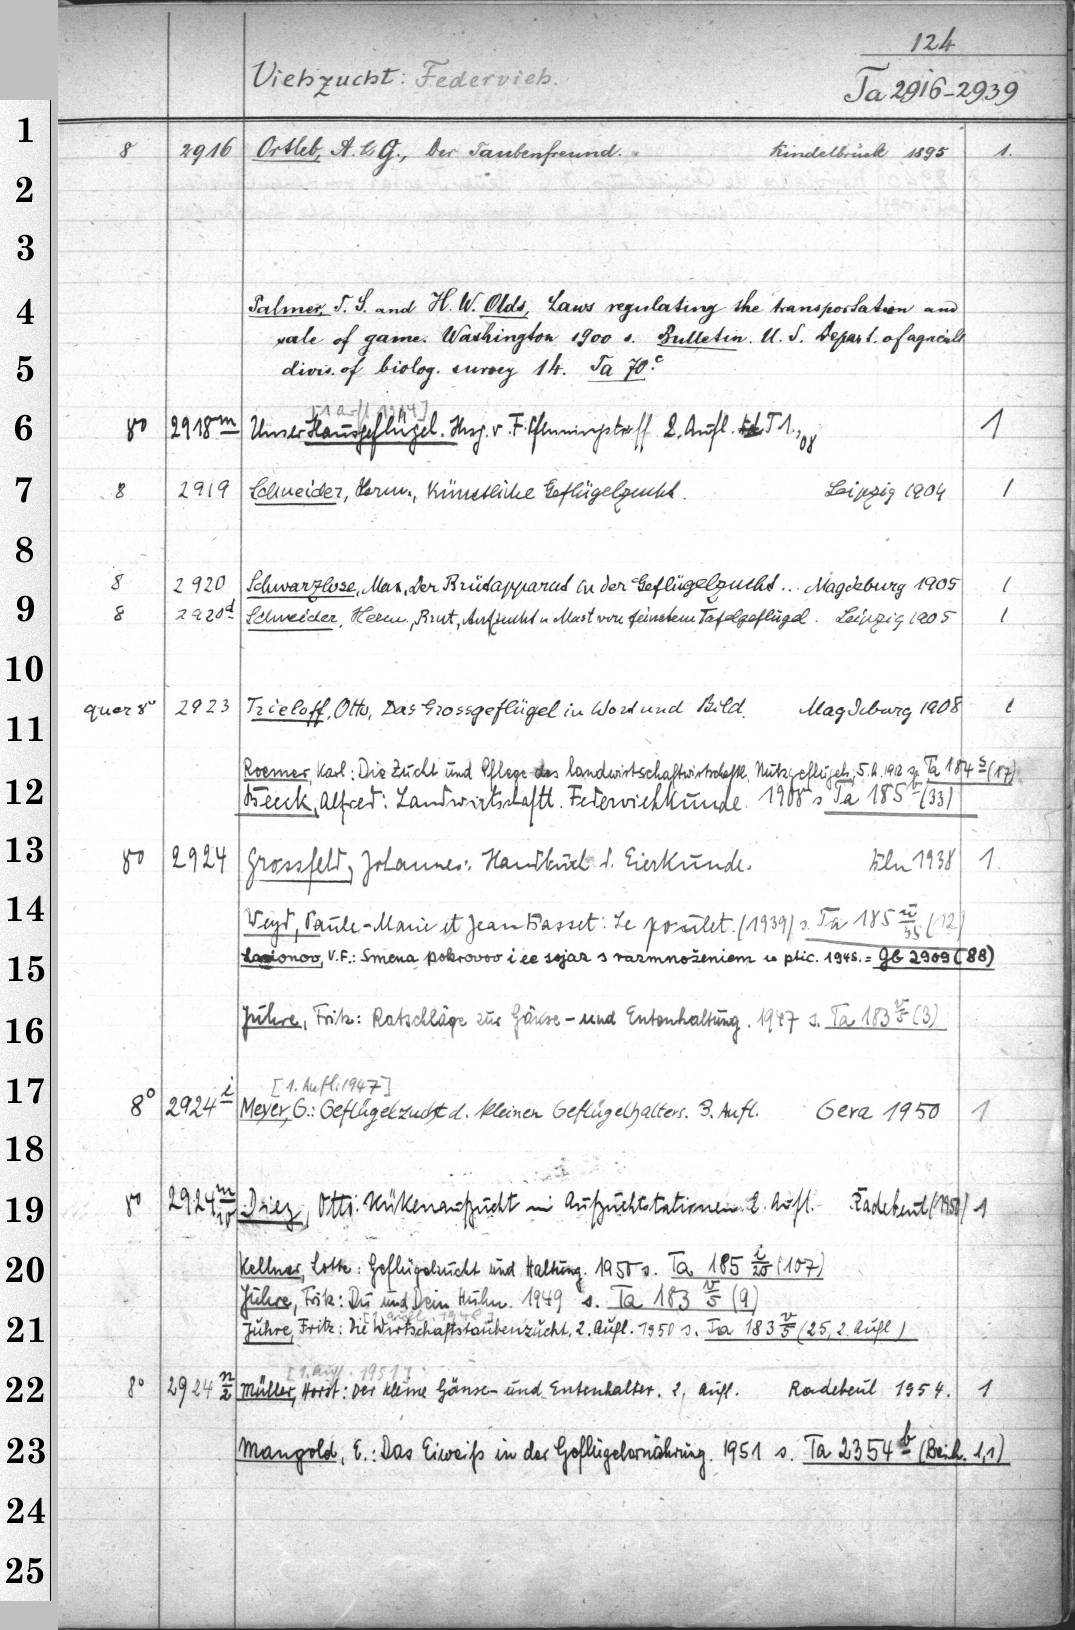 124
Viehzucht: Federvieh.
Ta 2916-2939
1
8 2916 Ortleb, A. & G., Der Taubenfreund. Kindelbrück 1895 1.
2
3
4 Palmer, T. S. and H. W. Olds, Laws regulating the transportation and
sale of game. Washington 1900 s. Bulletin. U. S. Depart. of agricult.
5 divis. of biolog. survey 14. Ta 70.c
[1 Aufl 1904]
6 8o 2918m Unser Hausgeflügel. Hrsg. v. F. Pfenningstorff 2. Aufl. T 1. 08 1
7 8 2919 Schneider, Herm., Künstliche Geflügelzucht. Leipzig 1904 1
8
8 2920 Schwarzlose, Max, Der Brütapparat in der Geflügelzucht... Magdeburg 1905 1
9 8 2920d Schneider, Herm., Brut, Aufzucht u Mast von feinstem Tafelgeflügel. Leipzig 1905 1
10
quer 8o 2923 Trieloff, Otto, Das Grossgeflügel in Wort und Bild. Magdeburg 1908 1
11
Roemer, Karl: Die Zucht und Pflege des landwirtschaftwirtschaftl. Nutzgeflügels, 5. A. 1912 s. Ta 184 s (17)
12 Beeck, Alfred: Landwirtschaftl. Federviehkunde. 1908 s Ta 185 (33)
13 8o 2924 Grossfeld, Johannes: Handbuch d. Eierkunde. Köln 1938 1.
14 Weyd, Paule-Marie et Jean Basset: Le poulet. (1939) s. Ta 185 w/35 (12)
15 Larionov, V.F.: Smena pokrovov i ee svjaz s razmnoženiem u ptic. 1945. = Gb 2909 (88)
16 Jühre, Fritz: Ratschläge zur Gänse- und Entenhaltung. 1947 s. Ta 183 v/5 (3)
[1. Aufl. 1947]
17 8o 2924i Meyer, G.: Geflügelzucht d. kleinen Geflügelhalters. 3. Aufl. Gera 1950 1
18
19 8o 2924 m/10 Driez, Otto: Kükenaufzucht in Aufzuchtstationen. 2. Aufl. Radebeul (1950) 1
20 Kellner, Lotte: Geflügelzucht und Haltung. 1950 s. Ta 185 i/20 (107)
Jühre, Fritz: Du und Dein Huhn. 1949 s. Ta 183 v/5 (9)
21 Jühre, Fritz: Die Wirtschaftstaubenzucht. 2. Aufl. 1950 s. Ta 183 v/5 (25, 2. Aufl)
[1. Aufl. 1951]
22 8o 2924 n/2 Müller, Horst: Der kleine Gänse- und Entenhalter. 2. Aufl. Radebeul 1954. 1
23 Mangold, E.: Das Eiweiß in der Geflügelernährung. 1951 s. Ta 2354 b (Beih. 1,1)
24
25